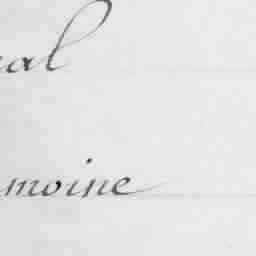 al
moine